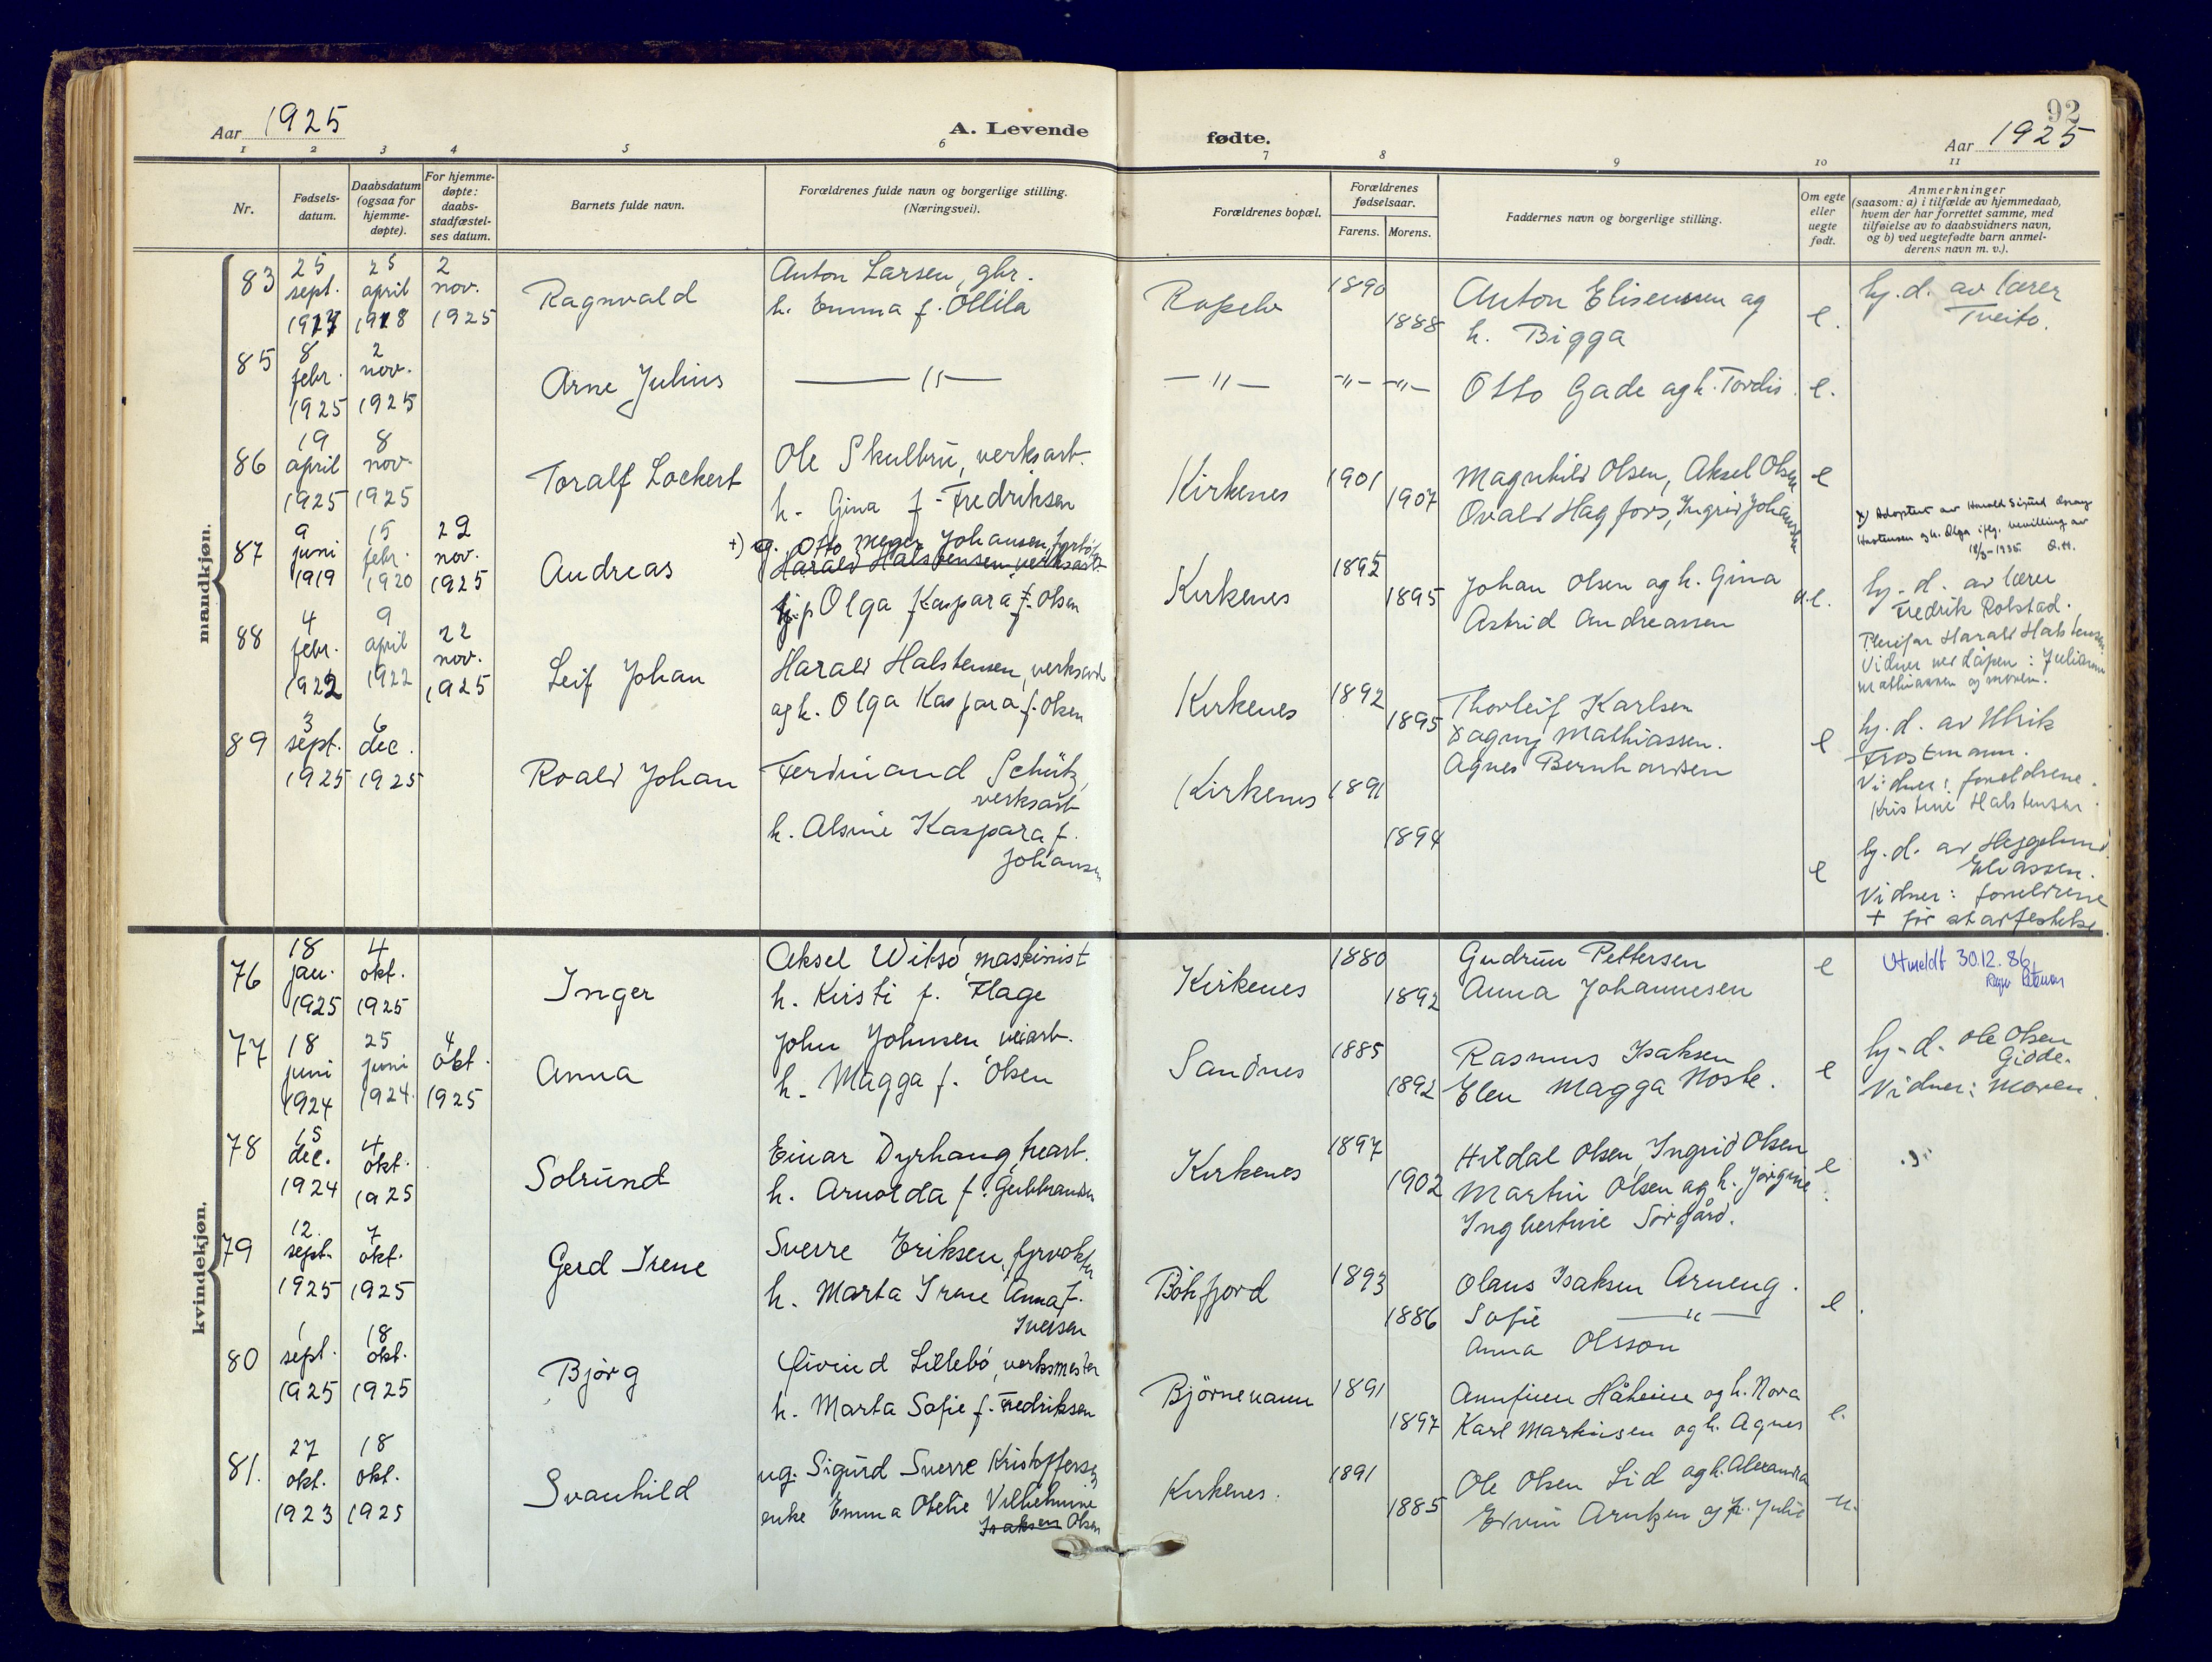 Aar 1925
A. Levende
fødte.
92
Aar 1925
1 2 3 4 5 6 7 8 9 10 11
Nr.
Fødsels-
datum.
Daabsdatum
(ogsaa for
hjemme-
døpte).
For hjemme-
døpte:
daabs-
stadfæstel-
ses datum.
Barnets fulde navn.
Forældrenes fulde navn og borgerlige stilling.
(Næringsvei).
Forældrenes bopæl.
Forældrenes
fødselsaar.
Farens. Morens.
Faddernes navn og borgerlige stilling.
Om egte
eller
uegte
født.
Anmerkninger
(saasom: a) i tilfælde av hjemmedaab,
hvem der har forrettet samme, med
tilføielse av to daabsvidners navn,
og b) ved uegtefødte barn anmel-
derens navn m. v.).
mandkjøn.
83
25
sept.
1917
25
april
1918
2
nov.
1925
Ragnvald
Anton Larsen, gbr.
h. Emma f. Ollila
1890
1888
Anton Elisenssen og
h. Bigga
e.
hj. d. av lærer
Tveito.
85
8
febr.
1925
2
nov.
1925
Arne Julius
— " —
— " —
— " — — " —
Otto Gade og h. Tordis
e.
86
19
april
1925
8
nov.
1925
Toralf Lockert
Ole Skulbru, verksarb.
h. Gina f. Fredriksen
Kirkenes
1901
1907
Magnhild Olsen, Aksel Olsen
Ovald Hagfors, Ingrid Johansen
e
87
9
juni
1919
15
febr.
1920
29
nov.
1925
Andreas
+) ug. Otto Meyer Johansen, fyrbøter
Harald Halstensen, verksarb.
p. Olga Kaspara f. Olsen
Kirkenes
1895
1895
Johan Olsen og h. Gina
Astrid Andreassen
u.e.
x) Adoptert av Harald Sigurd
og h. Olga ifg. bevilling av
18/3-1935.
hj. d. av lærer
Fredrik Rolstad.
Pleiefar Harald Halstensen
Vidner ved dåpen: Julianne
Mathiassen og moren.
88
4
febr.
1922
9
april
1922
22
nov.
1925
Leif Johan
Harald Halstensen, verksarb
og h. Olga Kaspara f. Olsen
Kirkenes
1892
1895
Thorleif Karlsen
Dagny Mathiassen.
Agnes Bernhardsen
e
hj. d. av Ulrik
Frostmann.
Vidner: foreldrene.
Kristine Halstensen.
89
3
sept.
1925
6
dec.
1925
Roald Johan
Ferdinand Schütz,
verksarb
h. Alsine Kaspara f.
Johansen
Kirkenes
1891
1894
e
hj. d. av Heggelund
Eliassen.
Vidner: foreldrene
+ før stadfestelse.
kvindekjøn.
76
18
jan.
1925
4
okt.
1925
Inger
Aksel Witsø, maskinist
h. Kirsti f. Flage
Kirkenes
1880
1892
Gudrun Pettersen
Anna Johannesen
e
Utmeldt 30.12.86
77
18
juni
1924
25
juni
1924
4
okt.
1925
Anna
John Johnsen veiarb.
h. Magga f. Olsen
Sandnes
1885
1892
Rasmus Isaksen
Elen Magga Noste.
e
hj. d. Ole Olsen
Gjøde.
Vidner: Moren.
78
15
dec.
1924
4
okt.
1925
Solrund
Einar Dyrhaug, trearb.
h. Arnolda f. Gulbransen
Kirkenes
1897
1902
Hildal Olsen, Ingrid Olsen
Martin Olsen og h. Jørgine
Ingbertine Sørgård.
e
79
12.
sept.
1925
7
okt.
1925
Gerd Irene
Sverre Eriksen, fyrvokter
h. Marta Irene Anna f.
Iversen
Bökfjord
1893
1886
Olaus Isaksen Arneng.
Sofie — " —
Anna Olsson
e.
80
1
sept.
1925
18
okt.
1925
Bjørg
Eivind Lillebø, verksmester
h. Marta Sofie f. Fredriksen
Björnevann
1891
1897
Annfinn Håheim og h. Nora
Karl Martinsen og h. Agnes
e.
81.
27
okt.
1923
18
okt.
1925
Svanhild
ug. Sigurd Sverre Kristoffersen
enke Emma Otelie Vilhelmine
Isaksen Olsen
Kirkenes.
1891
1885
Ole Olsen Lid og h. Alexandra
Ervin Arntzen og h. Julie
u.